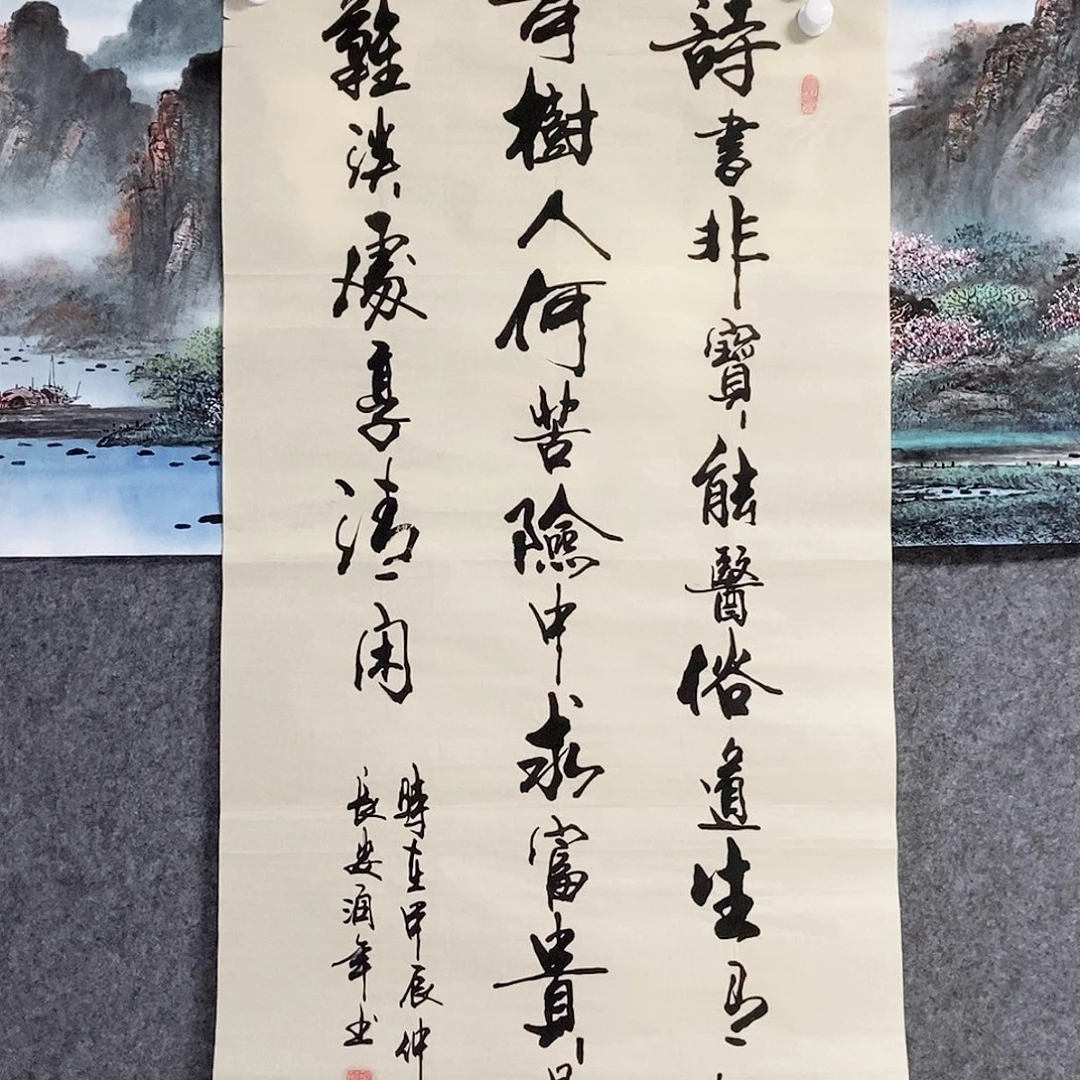 詩書非寶能醫俗道生
樹人何苦險中求富貴
難淡處享清闲
時在甲辰仲
長安润年书